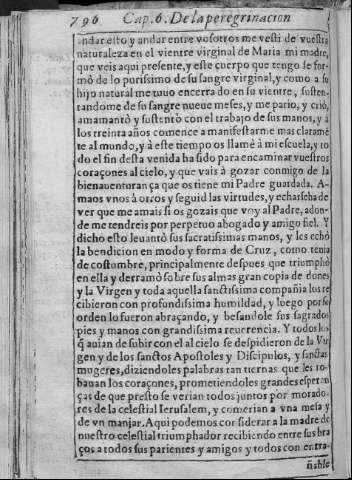 796 Cap. 6. De la peregrinacion
andar esto y andar entre vosotros me vesti de vuestra
naturaleza en el vientre virginal de Maria mi madre,
que veis aqui presente, y este cuerpo que tengo se for-
mò de lo purissimo de su sangre virginal, y como a su
hijo natural me tuuo encerrado en su vientre, susten-
tandome de su sangre nueue meses, y me pario, y criò,
amamantò y sustentò con el trabajo de sus manos, y à
los treinta años comence a manifestarme mas claramē
te al mundo, y à este tiempo os llamè à mi escuela, y to
do el fin desta venida ha sido para encaminar vuestros
coraçones al cielo, y que vais à gozar conmigo de la
bienauenturança que os tiene mi Padre guardada. A-
maos vnos à otros y seguid las virtudes, y echarseha de
ver que me amais si os gozais que voy al Padre, adon-
de me tendreis por perpetuo abogado y amigo fiel. Y
dicho esto leuantò sus sacratissimas manos, y les echò
la bendicion en modo y forma de Cruz, como tenia
de costumbre, principalmente despues que triumphò
en ella y derramò sobre sus almas gran copia de dones
y la Virgen y toda aquella sanctissima compañia los re
cibieron con profundissima humildad, y luego por se
orden lo fueron abraçando, y besandole sus sagrados
pies y manos con grandissima reuerencia. Y todos los
q̃ auian de subir con el al cielo se despidieron de la Vir
gen y de los sanctos Apostoles y Discipulos, y sanctas
mugeres, diziendoles palabras tan tiernas que les ro-
bauan los coraçones, prometiendoles grandes esperan
ças de que presto se verian todos juntos por morado-
res de la celestial Ierusalem, y comerian a vna mesa y
de vn manjar. Aqui podemos considerar a la madre de
nuestro celestial triumphador recibiendo entre sus bra
ços a todos sus parientes y amigos y todos con entra-
ñable